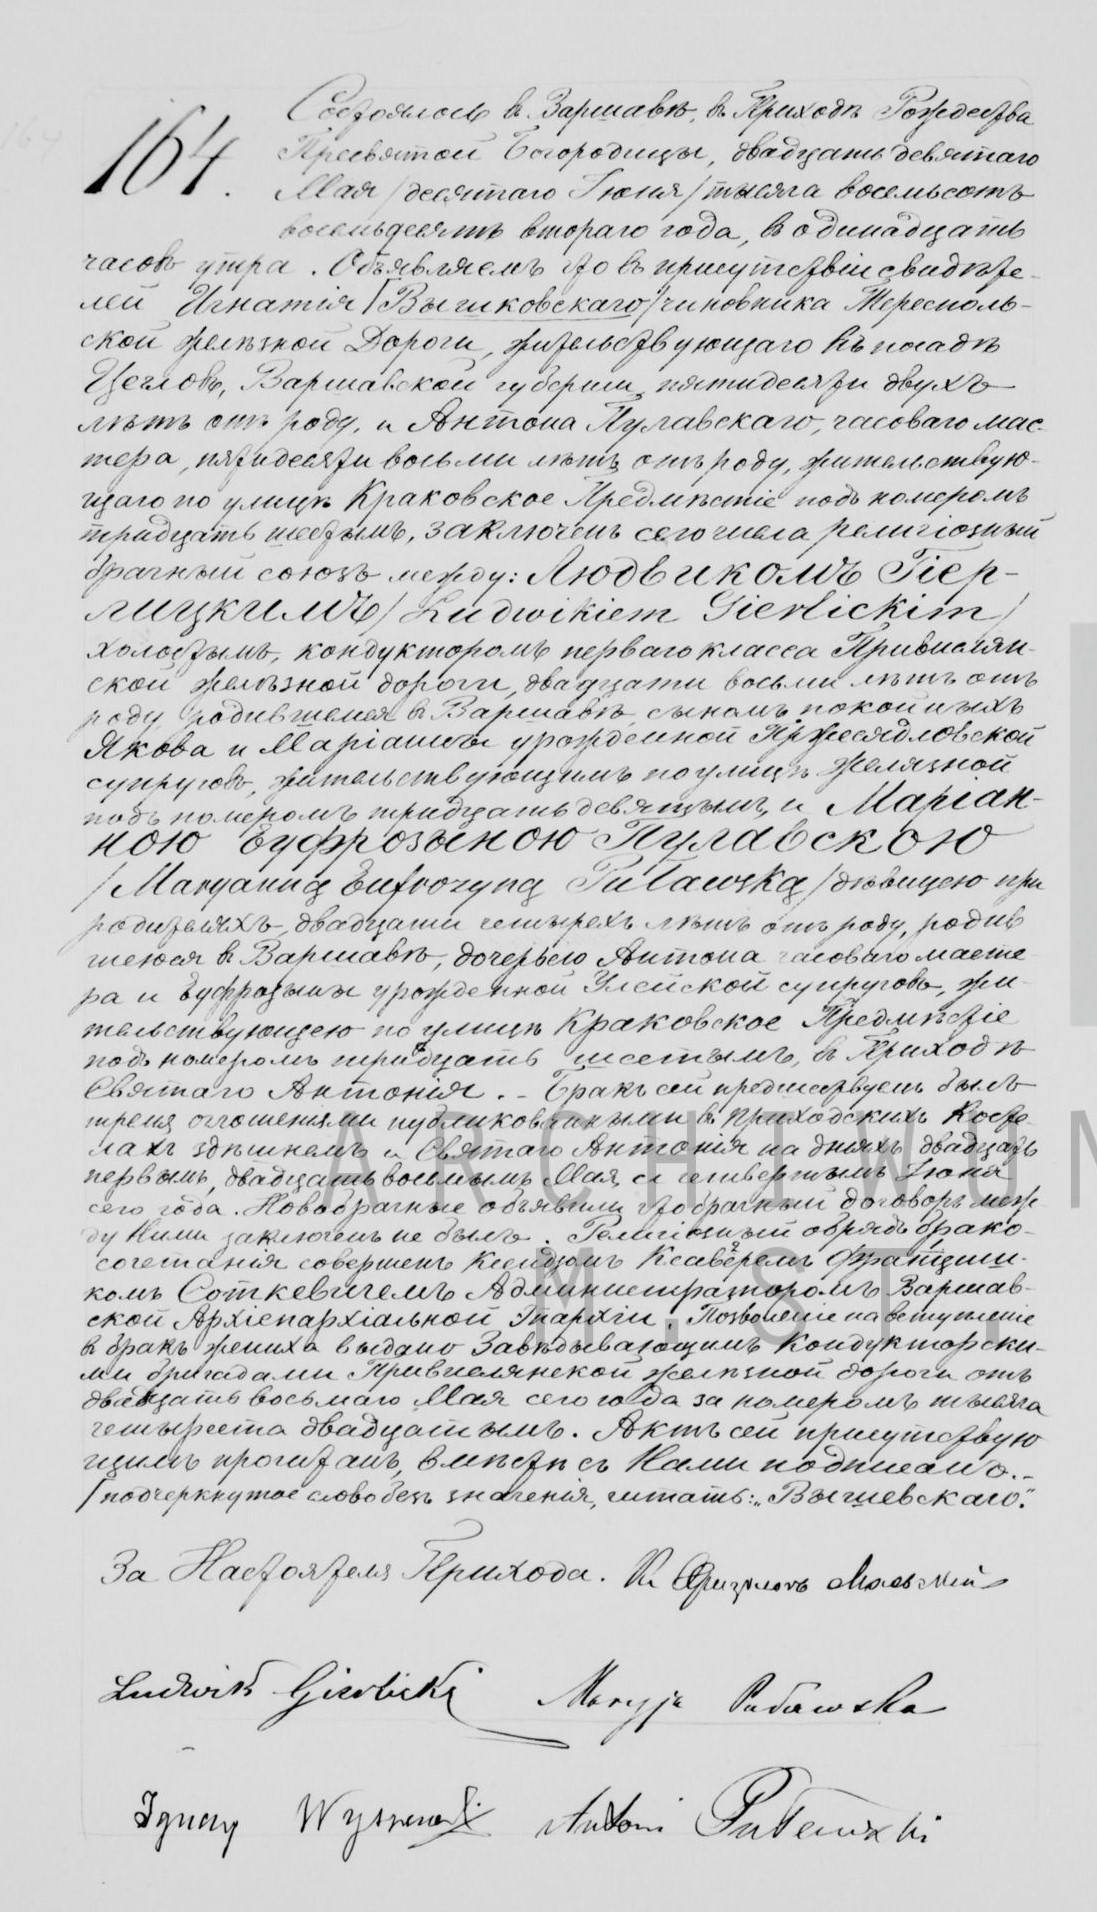 164.
Состоялось въ Варшавѣ, въ Приходѣ Рождества
Пресвятой Богородицы, двадцать девятаго
Мая /десятаго Іюня/ тысяча восемьсотъ
восемьдесятъ втораго года, въ одинадцать
часовъ утра. Объявляемъ что въ присутствіи свидѣте-
лей Игнатія /Вычиковскаго/ чиновника Тереспольс-
кой желѣзной Дороги, жительствующаго въ посадѣ
Цегловъ, Варшавской губерніи, пятидесяти двухъ
лѣтъ отъ роду, и Антона Пулавскаго, часоваго мас-
тера, пятидесяти восьми лѣтъ отъ роду, жительствую-
щаго по улицѣ Краковское Предмѣстіе подъ номеромъ
тридцать шестымъ, заключенъ сего числа религіозный
брачный союзъ между: Людвикомъ Гіер-
лицкимъ /Ludwikiem Gierlickim/
холостымъ, кондукторомъ перваго класса Привислян-
ской желѣзной дороги, двадцати восьми лѣтъ отъ
роду, родившемся въ Варшавѣ, сыномъ покойныхъ
Якова и Маріанны урожденной Пржесядловской
супруговъ, жительствующимъ по улицѣ Желязной
подъ номеромъ тридцать девятымъ, и Маріан-
ною Еуфрозыною Пулавскою
/Maryanną Eufrozyną Puławską/ дѣвицею при
родителяхъ, двадцати четырехъ лѣтъ отъ роду, родив
шеюся въ Варшавѣ, дочерью Антона часоваго масте-
ра и Еуфрозыны урожденной Улейской супруговъ, жи-
тельствующею по улицѣ Краковское Предмѣстіе
подъ номеромъ тридцать шестымъ, въ Приходѣ
Святаго Антонія. - Бракъ сей предшествуемъ былъ
тремя оглошеніями публикованными въ приходскихъ Косте-
лахъ здѣшнемъ и Святаго Антонія на дняхъ двадцать
первымъ, двадцать восьмымъ Мая, и четвертымъ Іюня
сего года. Новобрачные объявили что брачный договоръ меж-
ду Ними заключенъ не былъ. Религіозный обрядъ брако-
сочетанія совершенъ Ксендзомъ Ксаверемъ Францишк-
комъ Соткевичемъ Администраторомъ Варшав-
ской Архіепархіальной Епархіи. Позволеніе на вступленіе
въ бракъ жениха выдано Завѣдывающимъ Кондукторски-
ми бригадами Привислянской желѣзной дороги отъ
двадцать восьмаго Мая сего года за номеромъ тысяча
четыреста двадцатымъ. Актъ сей присутствую
щимъ прочитанъ, вмѣстѣ съ Нами подписанъ. -
/подчеркнутое слово безъ значенія, читать: „Вышевскаго."
За Настоятеля Прихода. Кс
Ludwik Gierlicki Maryja Puławska
Ignacy Wyszewski Antoni Puławski
ARCHIWUM
M. ST